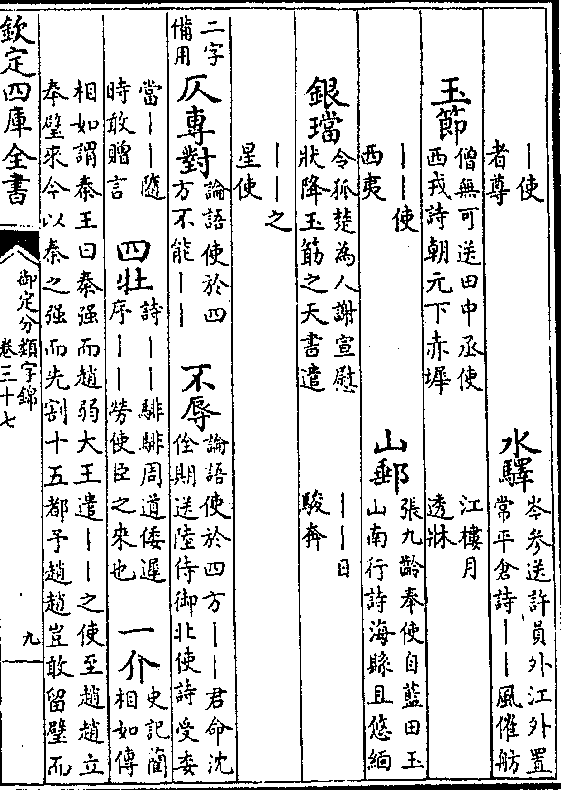 ｜使
者尊
水驛
岑參送許員外江外置
常平倉詩｜｜風催舫
玉節
僧無可送田中丞使
西戎詩朝元下赤墀
江樓月
透牀
｜｜使
西夷
山郵
張九齡奉使自藍田玉
山南行詩海縣且悠緬
銀璫
令狐楚為人謝宣慰
狀降玉筋之天書遣
｜｜日
駿奔
｜｜之
星使
二字
備用
仄專對
論語使於四
方不能｜｜
不辱
論語使於四方｜｜君命沈
佺期送陸侍御北使詩受委
當｜｜隨
時敢贈言
四牡
詩｜｜騑騑周道倭遲
序｜｜勞使臣之來也
一介
史記藺
相如傳
相如謂秦王曰秦强而趙弱大王遣｜｜之使至趙趙立
奉璧來今以秦之强而先割十五都予趙趙豈敢留璧而
欽定四庫全書
御定分類字錦
卷三十七
九